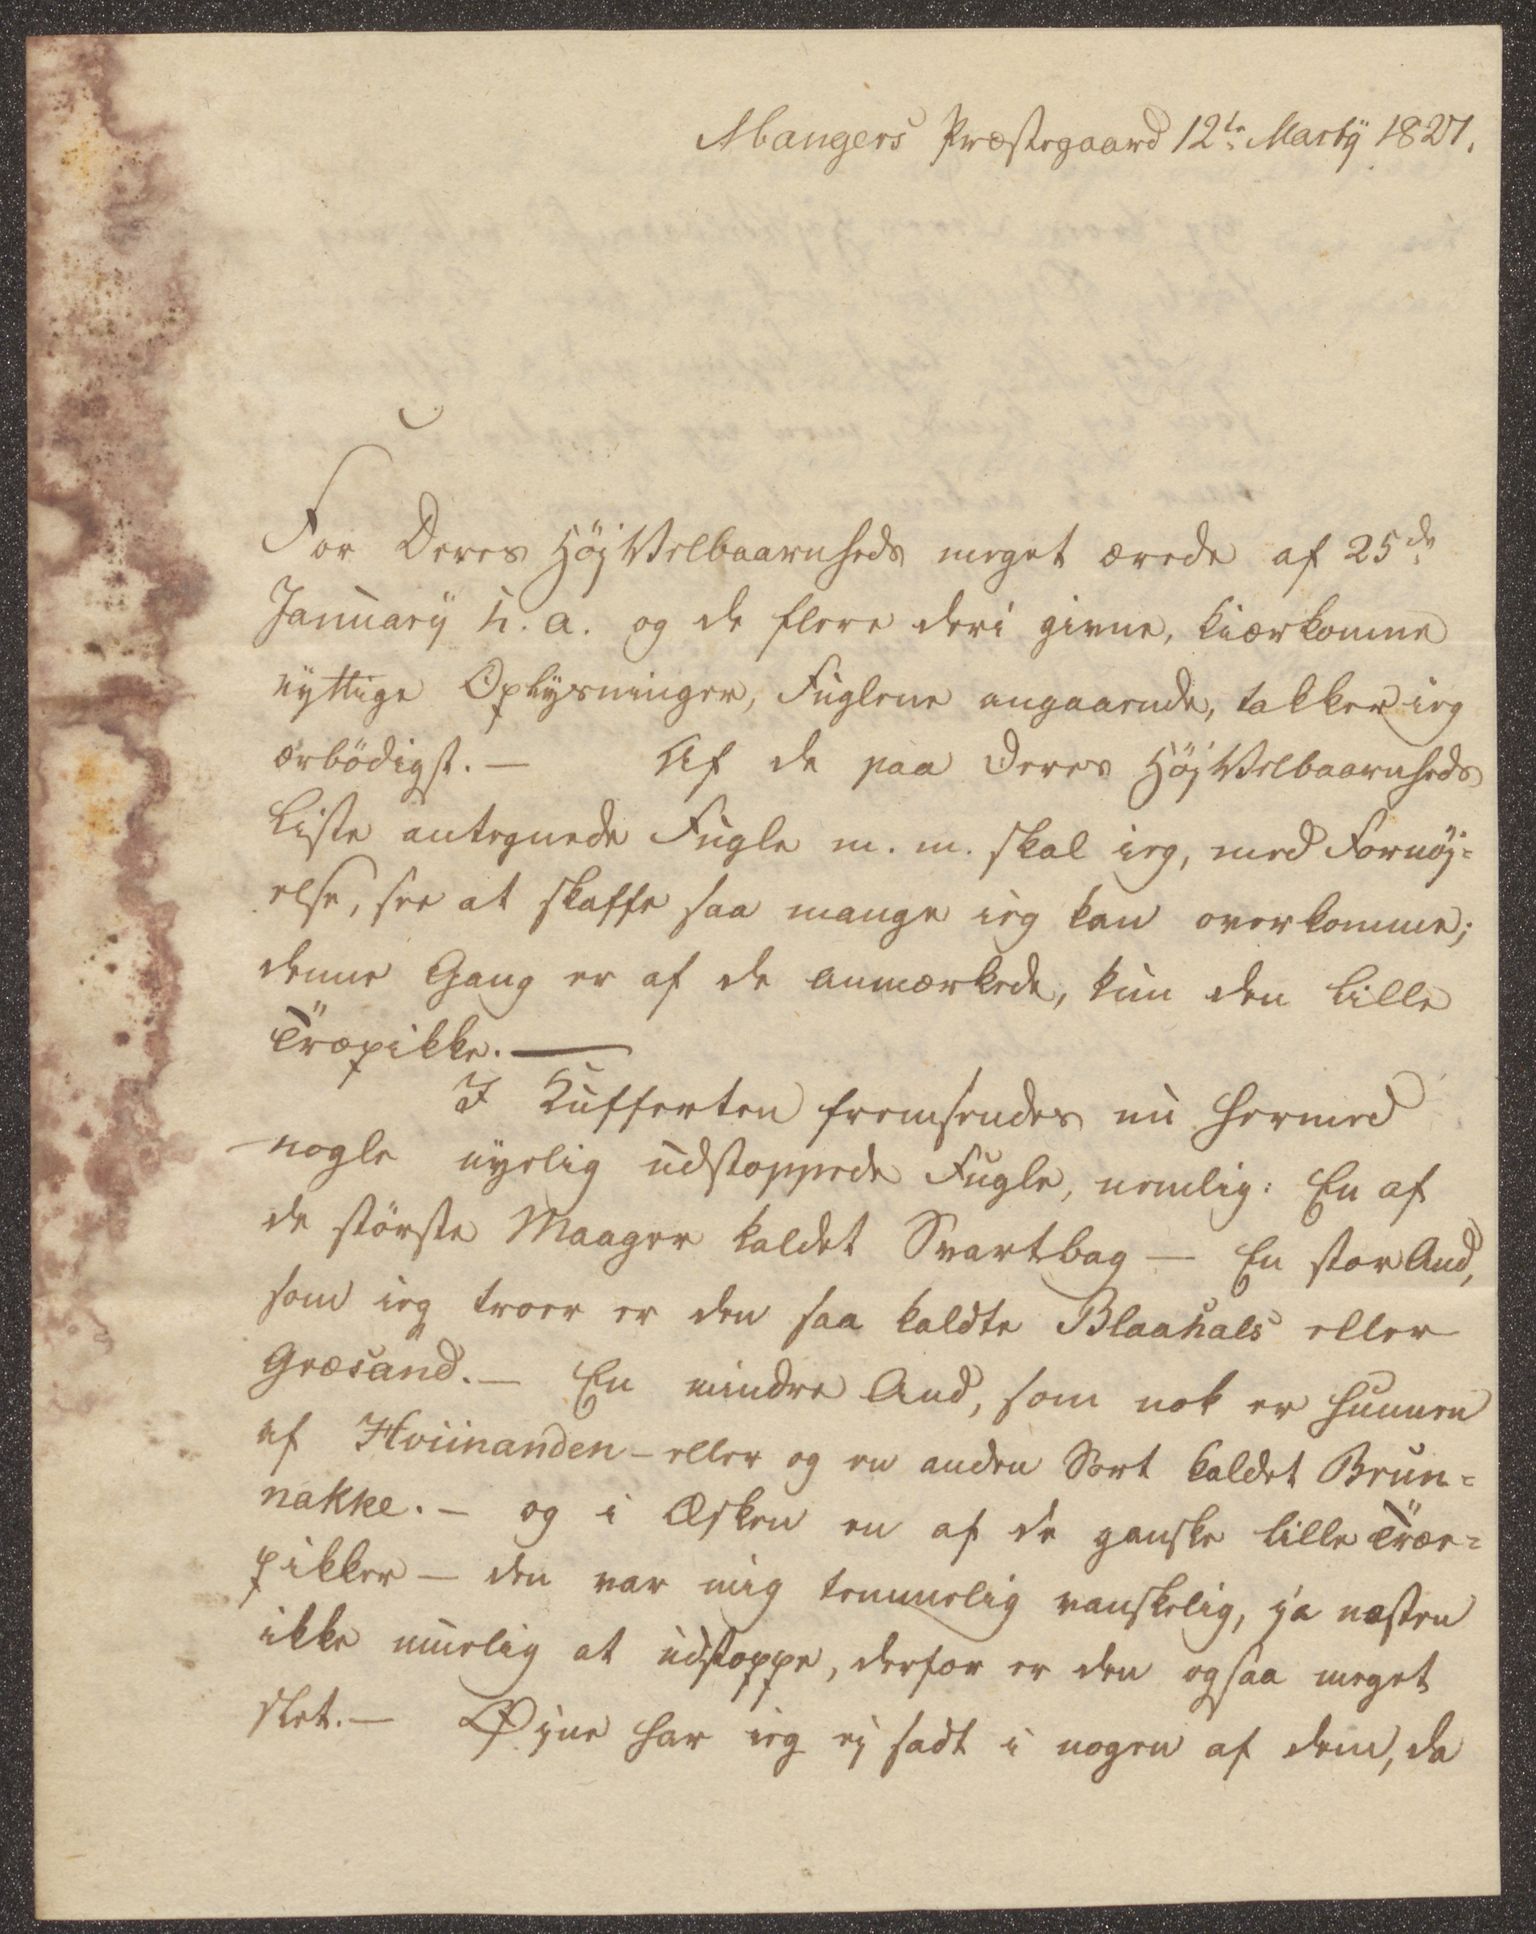 Mangers Præstegaard 12te Martÿ 1827.
For Deres HöjVelbaarnheds meget ærede af 25de
Januarÿ h. a. og de flere deri givne, kiærkomne
nyttige Oplysninger, Fuglene angaaende, takker ieg
ærbödigst. — Af de paa Deres HöjVelbaarnheds
Liste antegnede Fugle m. m. skal ieg, med Fornöj=
else, see at skaffe saa mange ieg kan overkomme;
denne Gang er af de anmærkede, kun den lille
Træpikke. —
I Kufferten fremsendes nu hermed
nogle nyelig udstoppede Fugle, nemlig: En af
de störste Maager kaldet Svartbag — En stor And,
som ieg troer er den saa kaldte Blaahals eller
Græsand. — En mindre And, som nok er Hunnen
af Hviinanden - eller og en anden Sort kaldet Brun=
nakke. — og i Æsken en af de ganske lille Træe=
pikker — den var mig temmelig vanskelig, ja næsten
ikke muelig at udstoppe, derfor er den ogsaa meget
slet. — Øjne har ieg ej sadt i nogen af dem, da